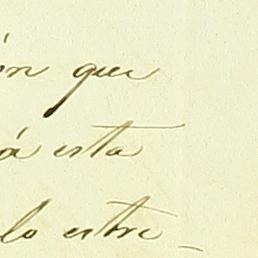 ón que
á esta
lo entre_